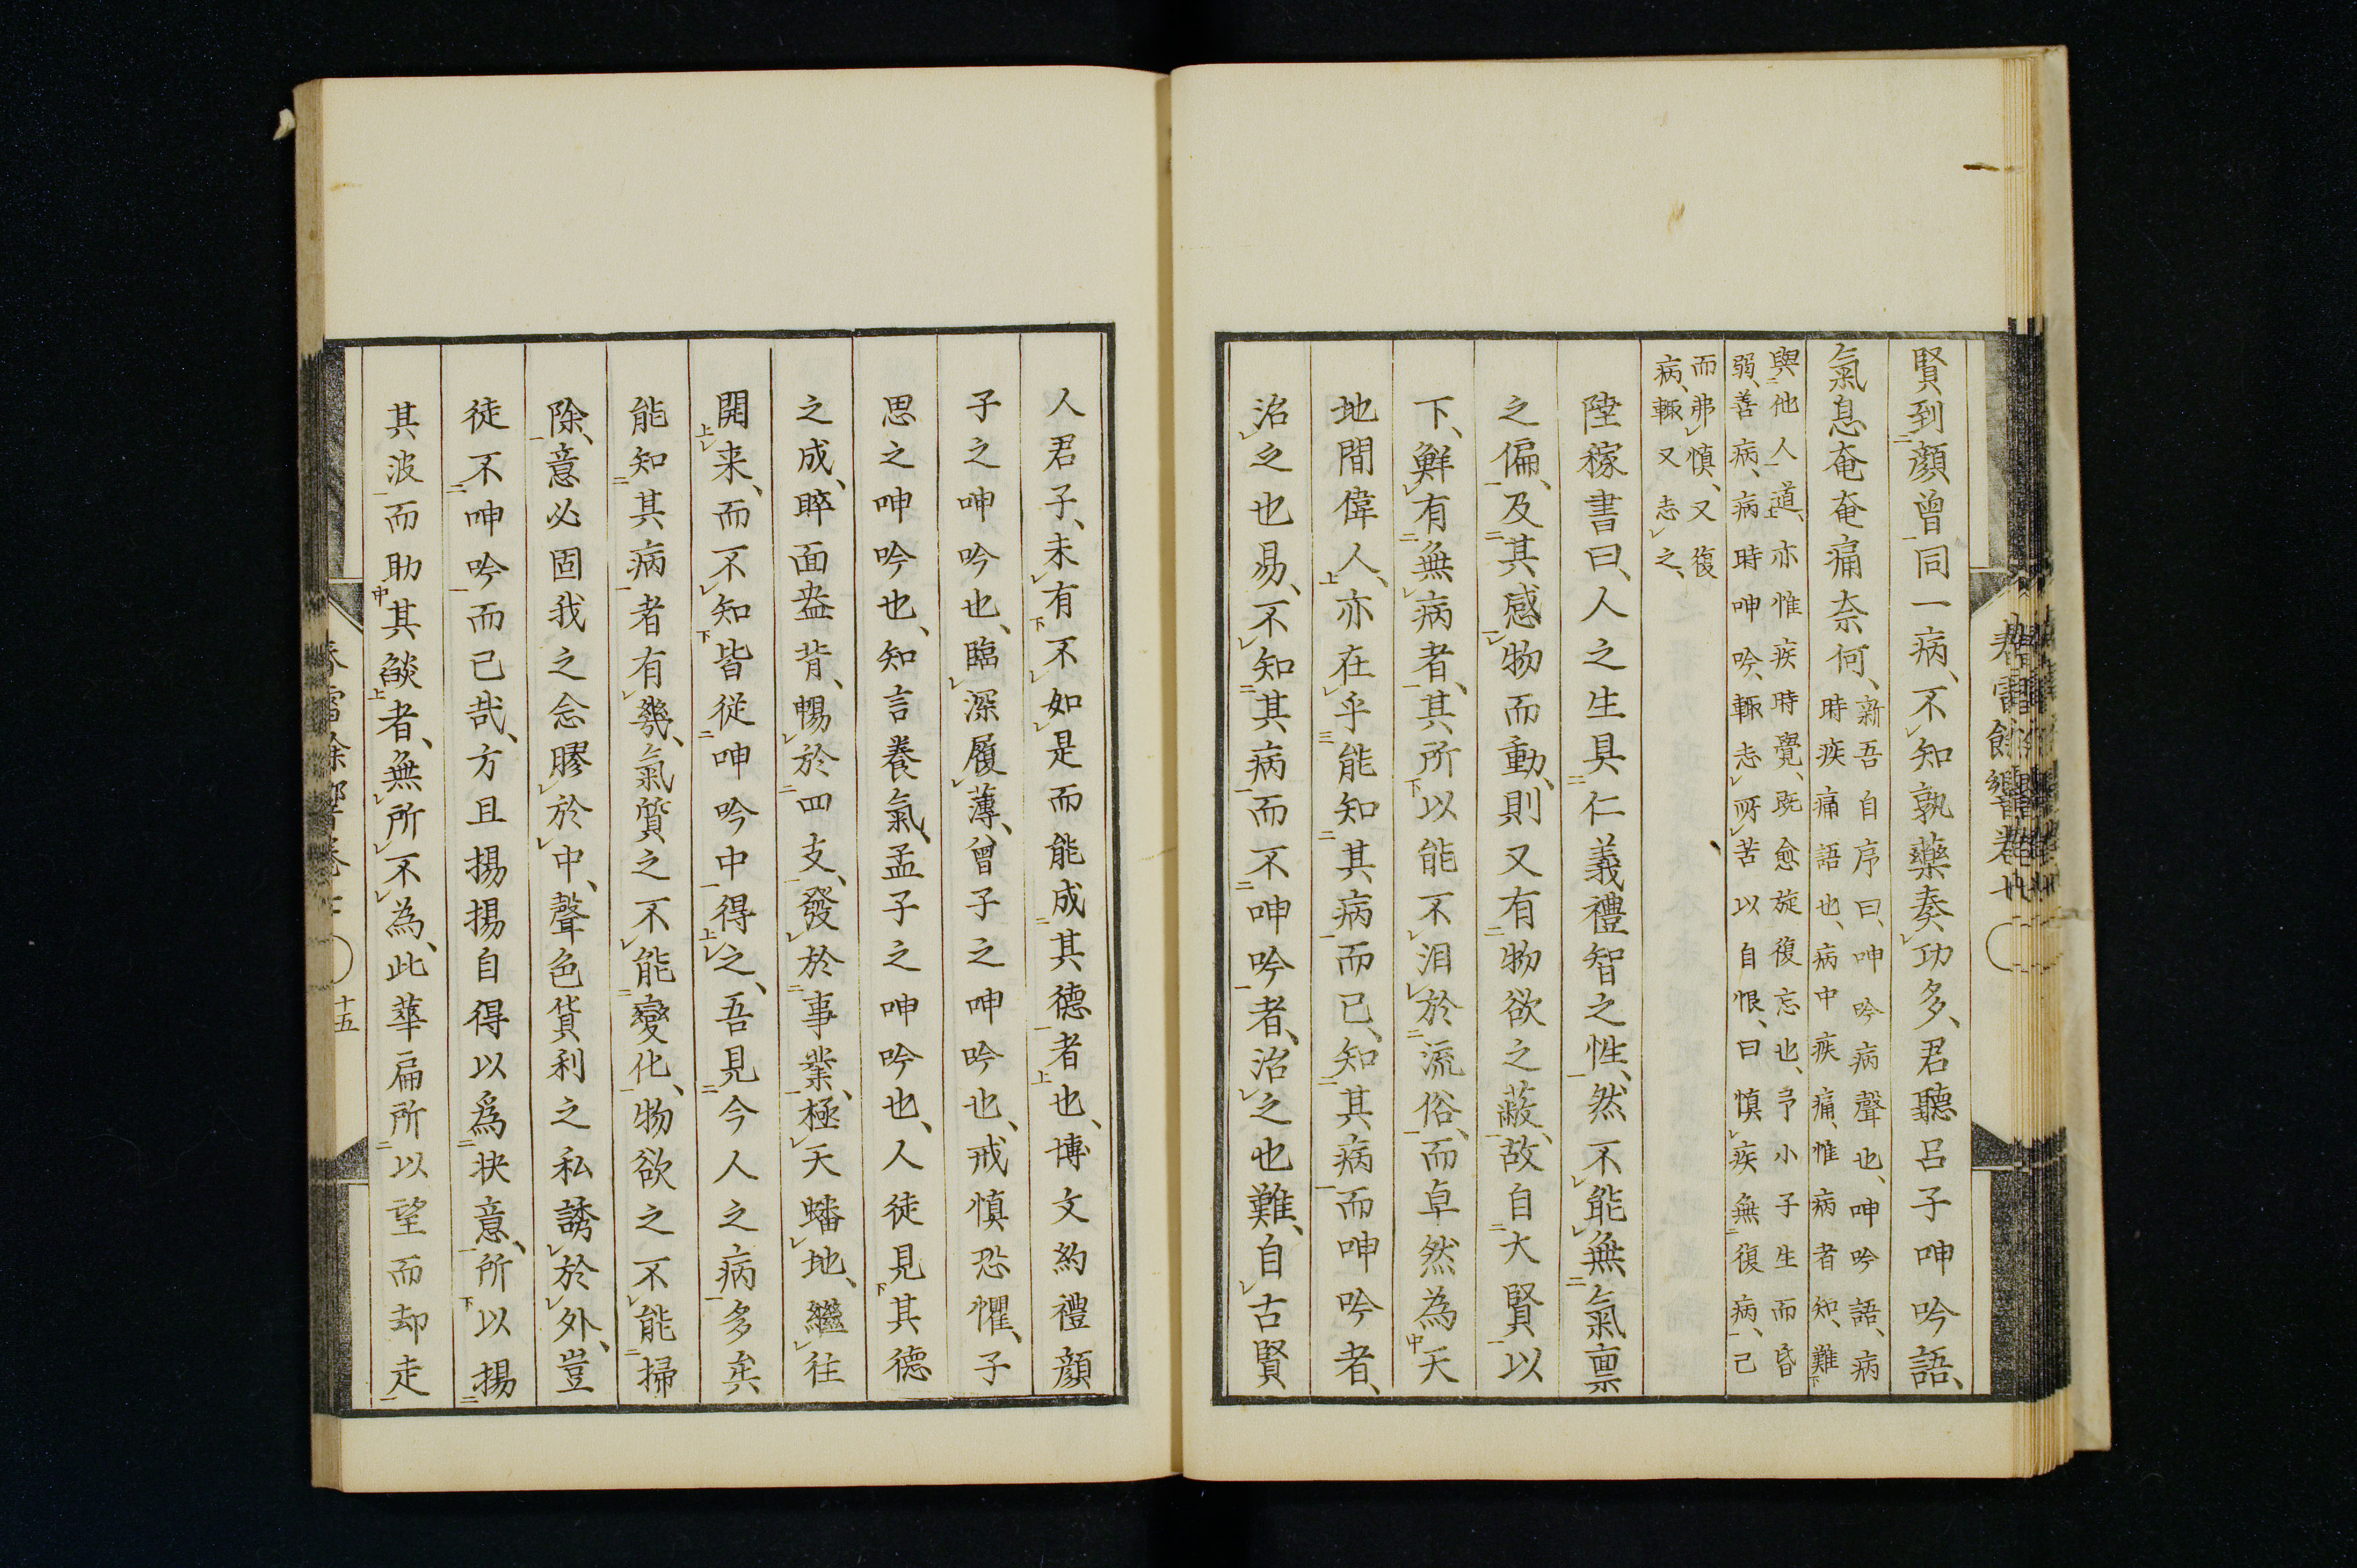 賢到顏曾同一病、不知孰藥奏功多、君聽呂子呻吟語、
氣息奄奄痛奈何、
新吾自序曰、呻吟病聲也、呻吟語、病
時疾痛語也、病中疾痛、惟病者知、難
與他人道、亦惟疾時覺、既愈旋復忘也、予小子生而昏
弱、善病、病時呻吟、輒志所苦以自恨、曰慎疾無復病、已
而弗慎、又復
病、輒又志之、
陸稼書曰、人之生具仁義禮智之性、然不能無氣禀
之偏、及其感物而動、則又有物欲之蔽、故自大賢以
下、鮮有無病者、其所以能不泪於流俗、而卓然為天
地間偉人、亦在乎能知其病而已、知其病而呻吟者、
治之也易、不知其病而不呻吟者、治之也難、自古賢
人君子、未有不如是而能成其德者也、博文約禮顏
子之呻吟也、臨深履薄、曾子之呻吟也、戒慎恐懼、子
思之呻吟也、知言養氣、孟子之呻吟也、人徒見其德
之成、睟面盎背、暢於四支、發於事業、極天蟠地、繼往
開来、而不知皆從呻吟中得之、吾見今人之病多矣
能知其病者有幾、氣質之不能變化、物欲之不能掃
除、意必固我之念膠於中、聲色貨利之私誘於外、豈
徒不呻吟而已哉、方且揚揚自得以爲快意、所以揚
其波而助其燄者、無所不為、此華扁所以望而却走
十五